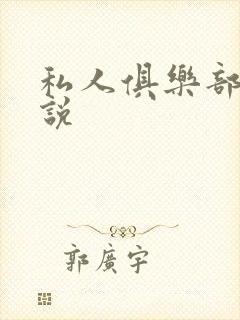 私人俱樂部
說
郭廣宇